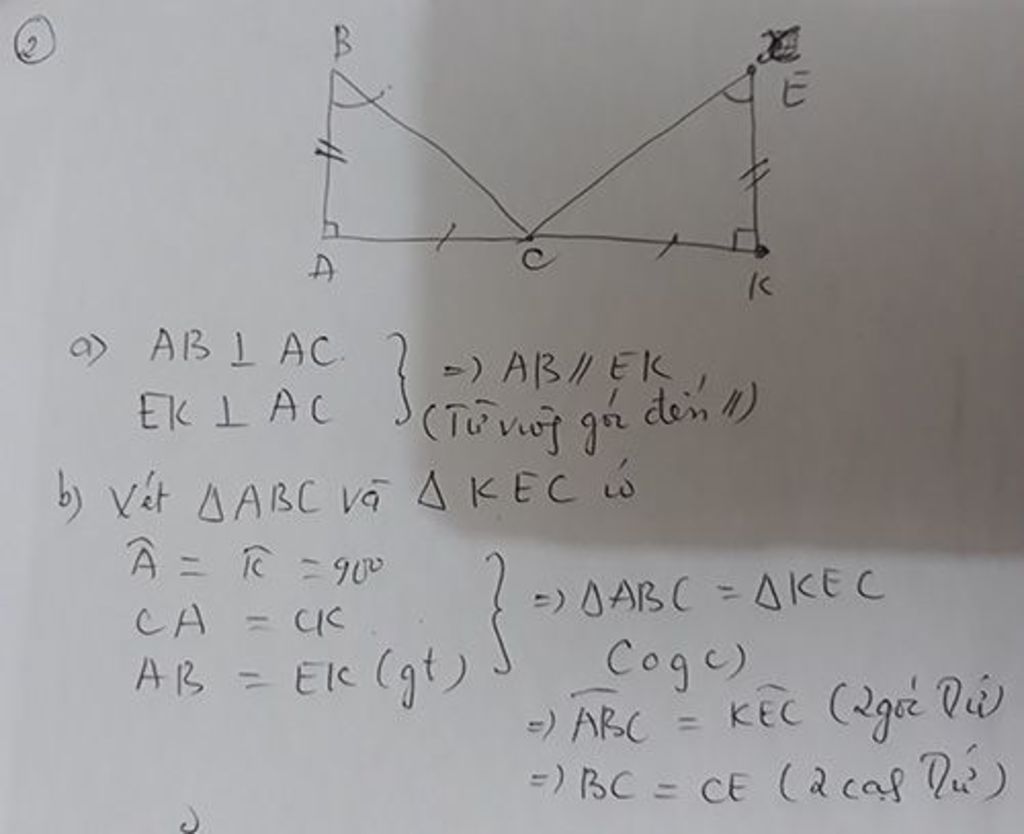 2
B
E
A
C
K
a) AB ⊥ AC
EK ⊥ AC
} => AB // EK
(Từ vuông góc đến //)
b) Xét ΔABC và Δ KEC có
Â = K̂ = 900
CA = CK
AB = EK (gt)
} => ΔABC = ΔKEC
(cgc)
=> ABC = KEC (2 góc Tứ)
=> BC = CE (2 cạnh Tứ)